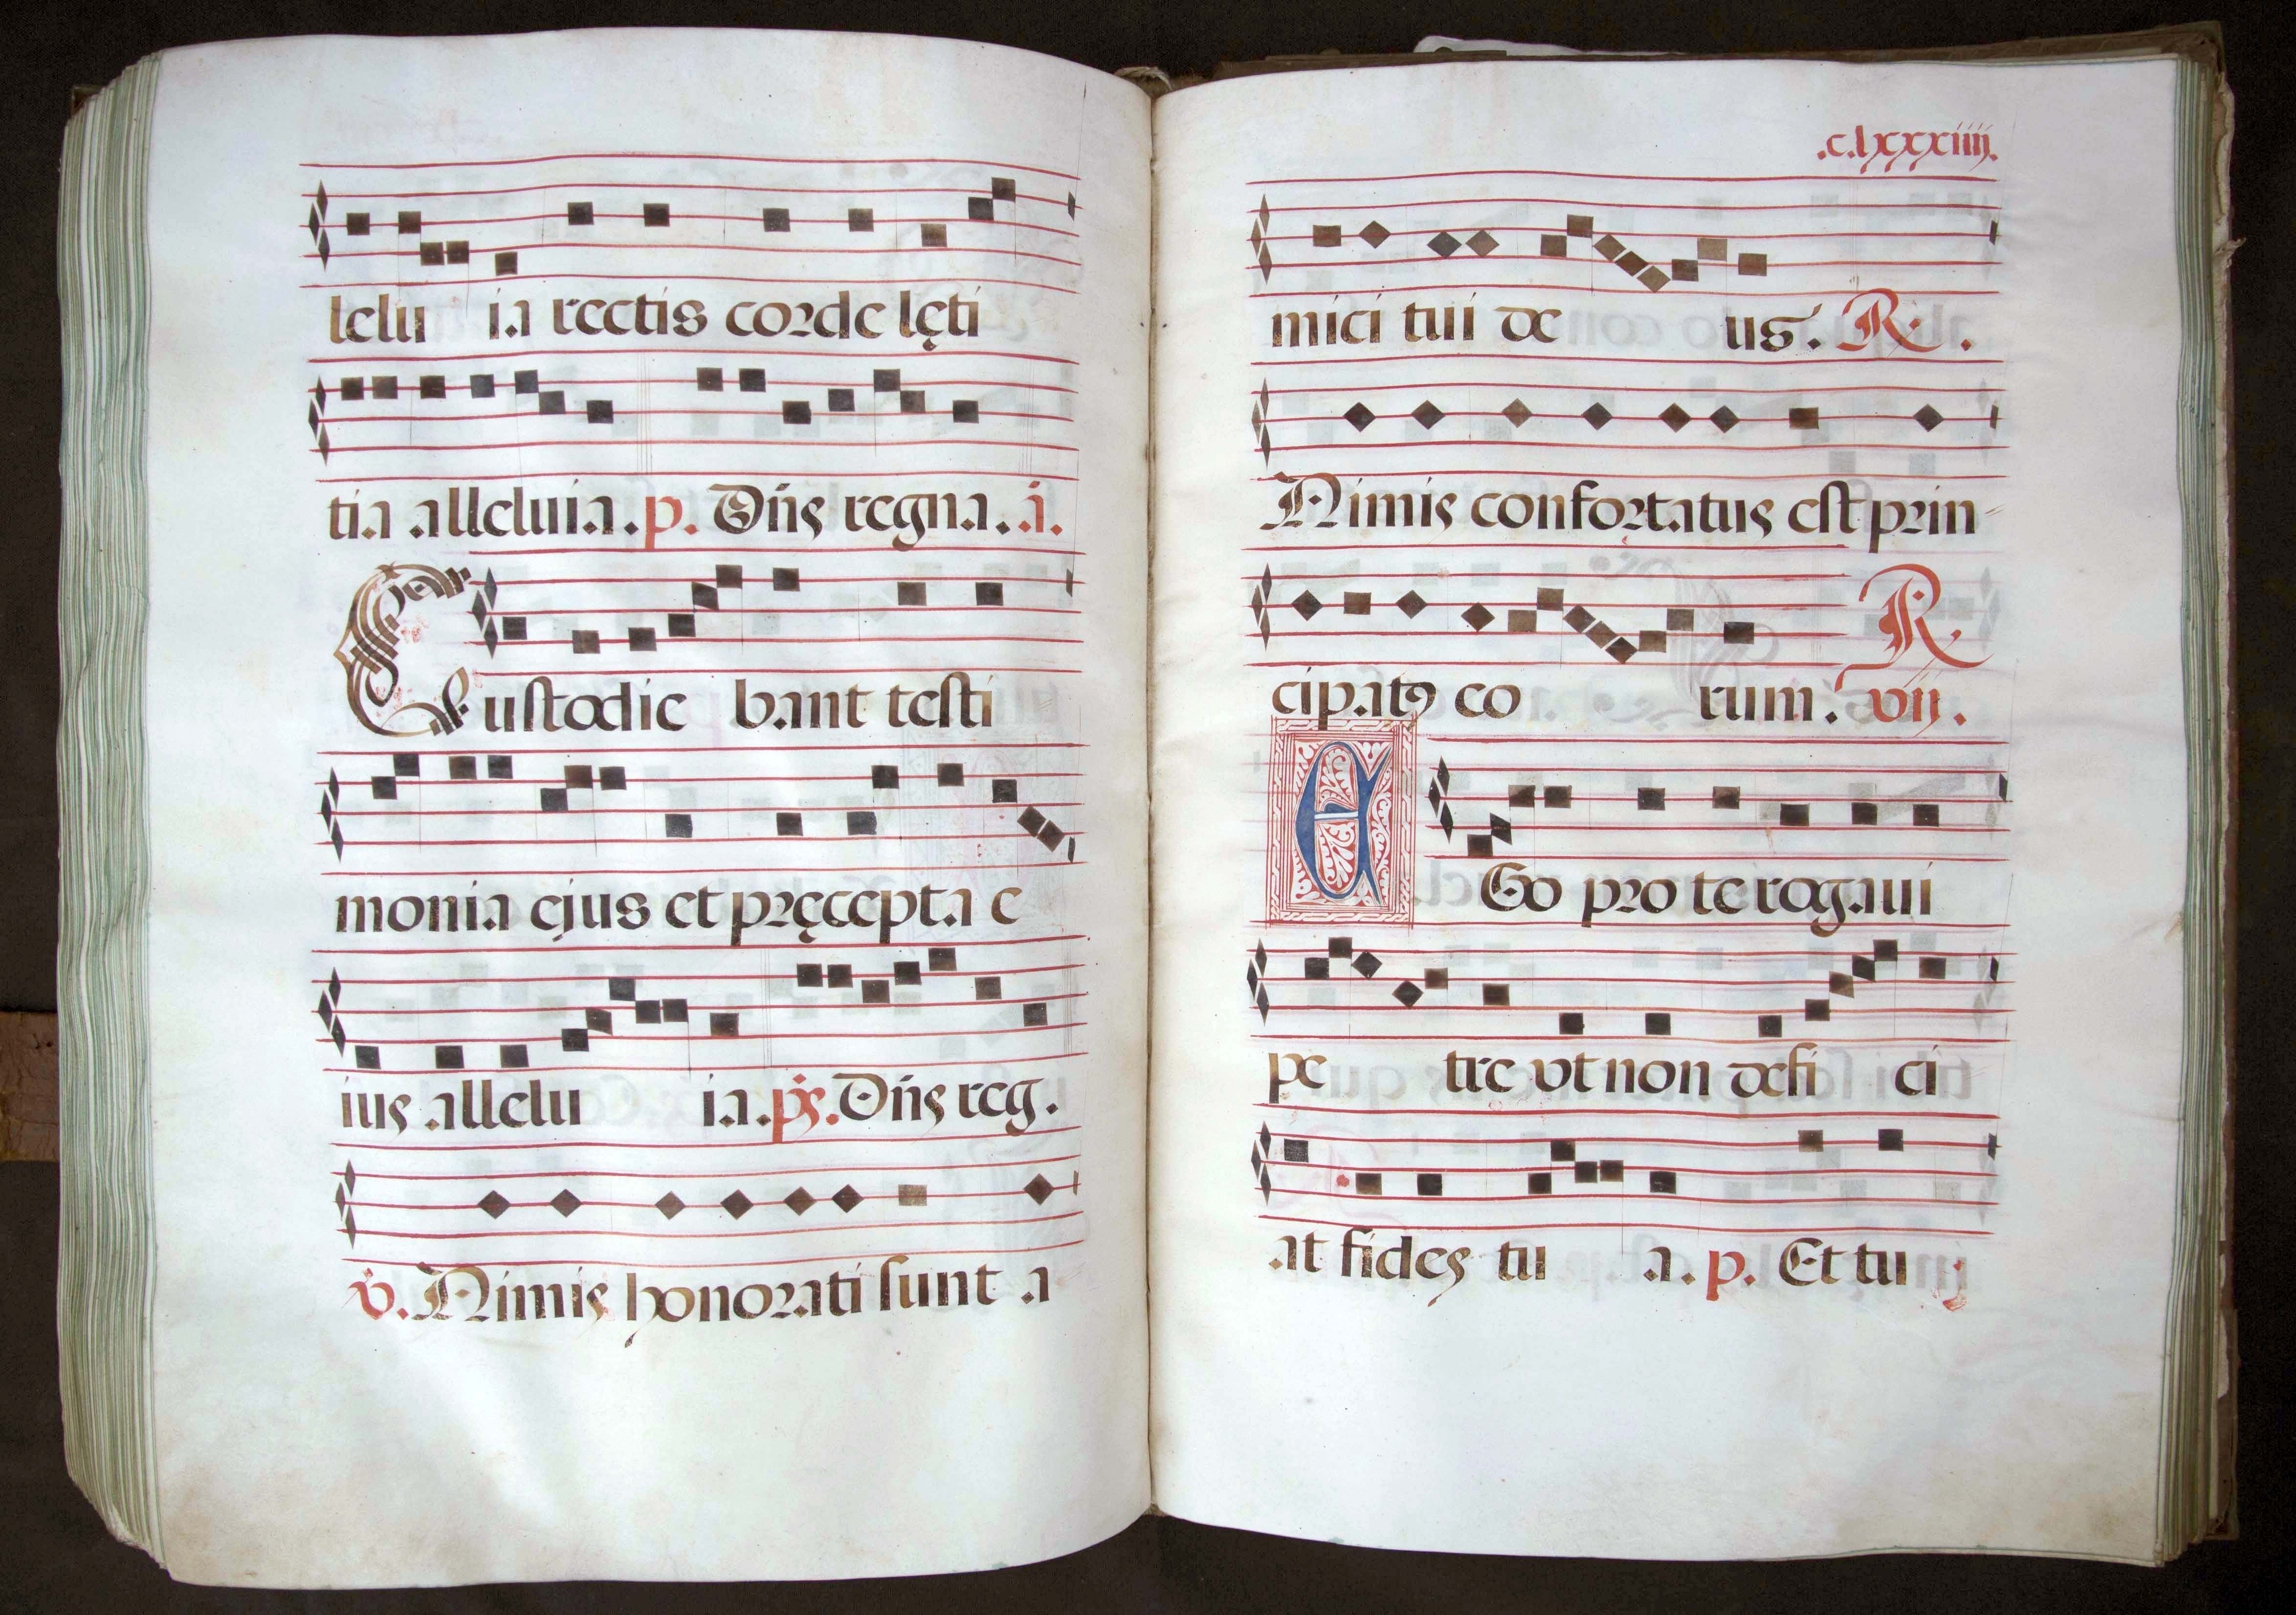 lelu ia rectis corde lęti
tia alleluia. p. Dn̄s regna. a.
Custodie bant testi
monia ejus et pręcepta e
ius allelu ia. ps. Dn̄s reg.
v. Nimis honorati sunt a
.c.lxxxiiij.
mici tui de us. R.
Nimis confortatus est prin
cipatꝯ eo rum. R vij.
EGo pro te rogaui
pe tre vt non defi ci
at fides tu a. p. Et tu